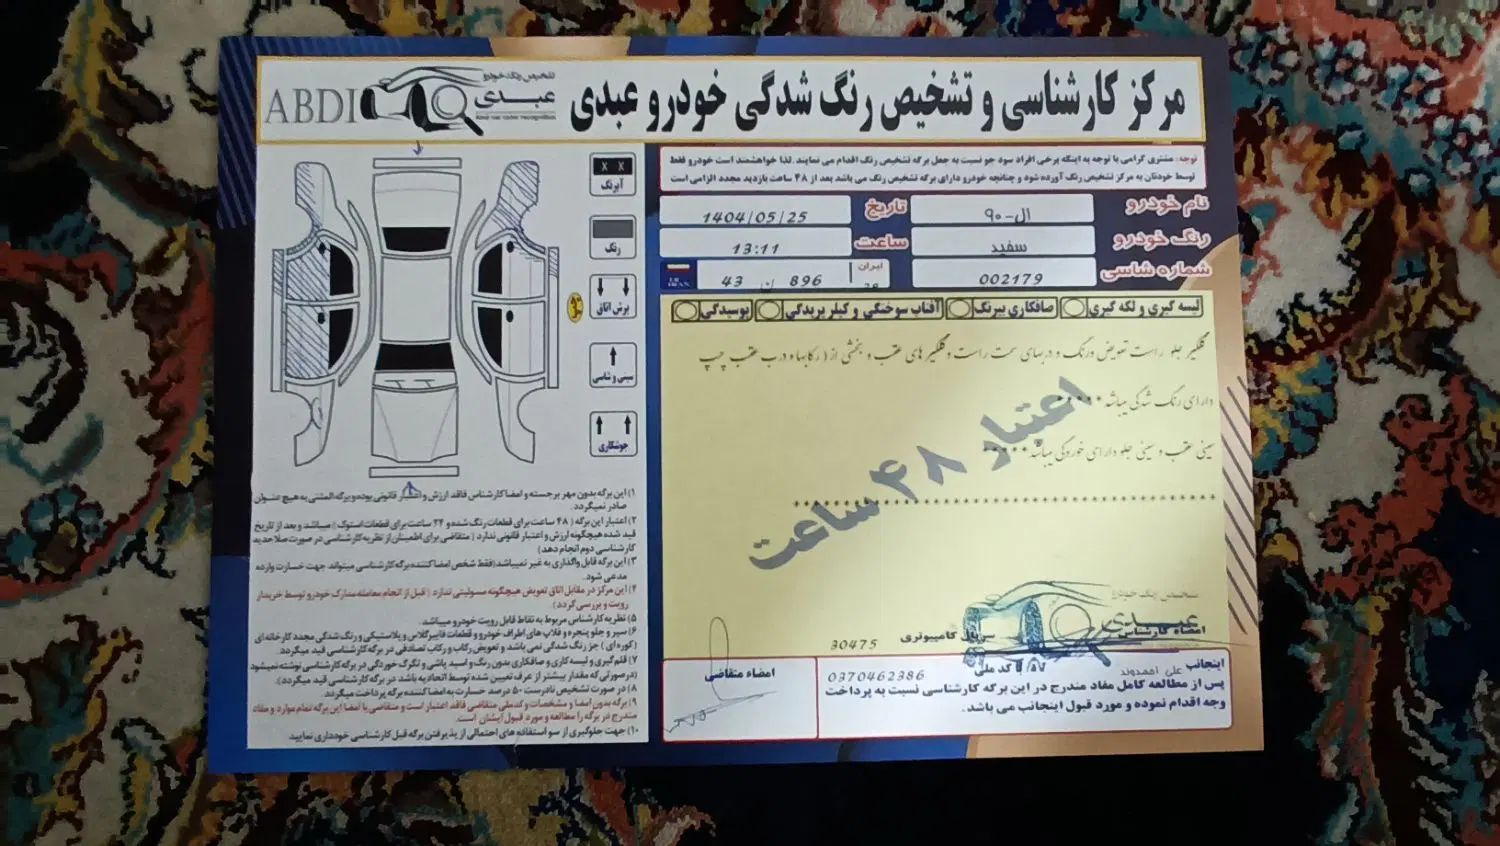 مرکز کارشناسی و تشخیص رنگ شدگی خودرو عبدی
تشخیص رنگ خودرو
عبدی
ABDI
توجه: مشتری گرامی با توجه به اینکه برخی افراد سود جو نسبت به جعل برگه تشخیص رنگ اقدام می نمایند. لذا خواهشمند است خودرو فقط
توسط خودتان به مرکز تشخیص رنگ آورده شود و چنانچه خودرو دارای برگه تشخیص رنگ می باشد بعد از ۴۸ ساعت بازدید مجدد الزامی است
نام خودرو ال-۹۰ تاریخ 1404/05/25
رنگ خودرو سفید ساعت 13:11
شماره شاسی 002179 ایران 896 43
I.R. IRAN
لیسه گیری و لکه گیری
صافکاری بیرنگ
آفتاب سوختگی و کیلر پریدگی
پوسیدگی
گلگیر جلو راست تعویض و رنگ و دربهای سمت راست و گلگیر های عقب و بخشی از ( رکابها و درب عقب چپ
دارای رنگ شدگی میباشد
سینی عقب و سینی جلو دارای خوردگی میباشد
اعتبار ۴۸ ساعت
X X
آبرنگ
رنگ
برش اتاق
سینی و شاسی
جوشکاری
۱) این برگه بدون مهر برجسته و امضا کارشناس فاقد ارزش و اعتبار قانونی بوده و برگه المثنی به هیچ عنوان
صادر نمیگردد.
۲) اعتبار این برگه ( ۴۸ ساعت برای قطعات رنگ شده و ۲۴ ساعت برای قطعات استوک ) میباشد و بعد از تاریخ
قید شده هیچگونه ارزش و اعتبار قانونی ندارد ( متقاضی برای اطمینان از نظریه کارشناسی در صورت صلاحدید
کارشناسی دوم انجام دهد)
۳) این برگه قابل واگذاری به غیر نمیباشد (فقط شخص امضا کننده برگه کارشناسی میتواند جهت خسارت وارده
مدعی شود.
۴) این مرکز در مقابل اتاق تعویض هیچگونه مسولیتی ندارد. ( قبل از انجام معامله مدارک خودرو توسط خریدار
رویت و بررسی گردد)
۵) نظریه کارشناس مربوط به نقاط قابل رویت خودرو میباشد.
۶) سپر و جلو پنجره و فلاپ های اطراف خودرو و قطعات فایبرگلاس و پلاستیکی و رنگ شدگی مجدد کارخانه ای
(کوره ای ) جز رنگ شدگی نمی باشد و تعویض رکاب و رکاب تصادفی در برگه کارشناسی قید میگردد.
۷) قلم گیری و لیسه کاری و صافکاری بدون رنگ و اسید پاشی و تگرگ خوردگی در برگه کارشناسی نوشته نمیشود
(درصورتی که مقدار بیشتر از عرف تعیین شده توسط اتحادیه باشد در برگه کارشناسی قید میگردد).
۸) در صورت تشخیص نادرست ۵۰ درصد خسارت به امضا کننده برگه پرداخت میگردد.
۹) برگه بدون امضا و مشخصات و کدملی متقاضی فاقد اعتبار است و متقاضی با امضا این برگه تمام موارد و مفاد
مندرج در برگه را مطالعه و مورد قبول ایشان است.
۱۰) جهت جلوگیری از سو استفاده های احتمالی از پذیرفتن برگه قبل کارشناسی خودداری نمایید.
تشخیص رنگ خودرو
عبدی
امضاء کارشناس
سریال کامپیوتری 30475
اینجانب علی احمدوند کد ملی 0370462386
پس از مطالعه کامل مفاد مندرج در این برگه کارشناسی نسبت به پرداخت
وجه اقدام نموده و مورد قبول اینجانب می باشد.
امضاء متقاضی